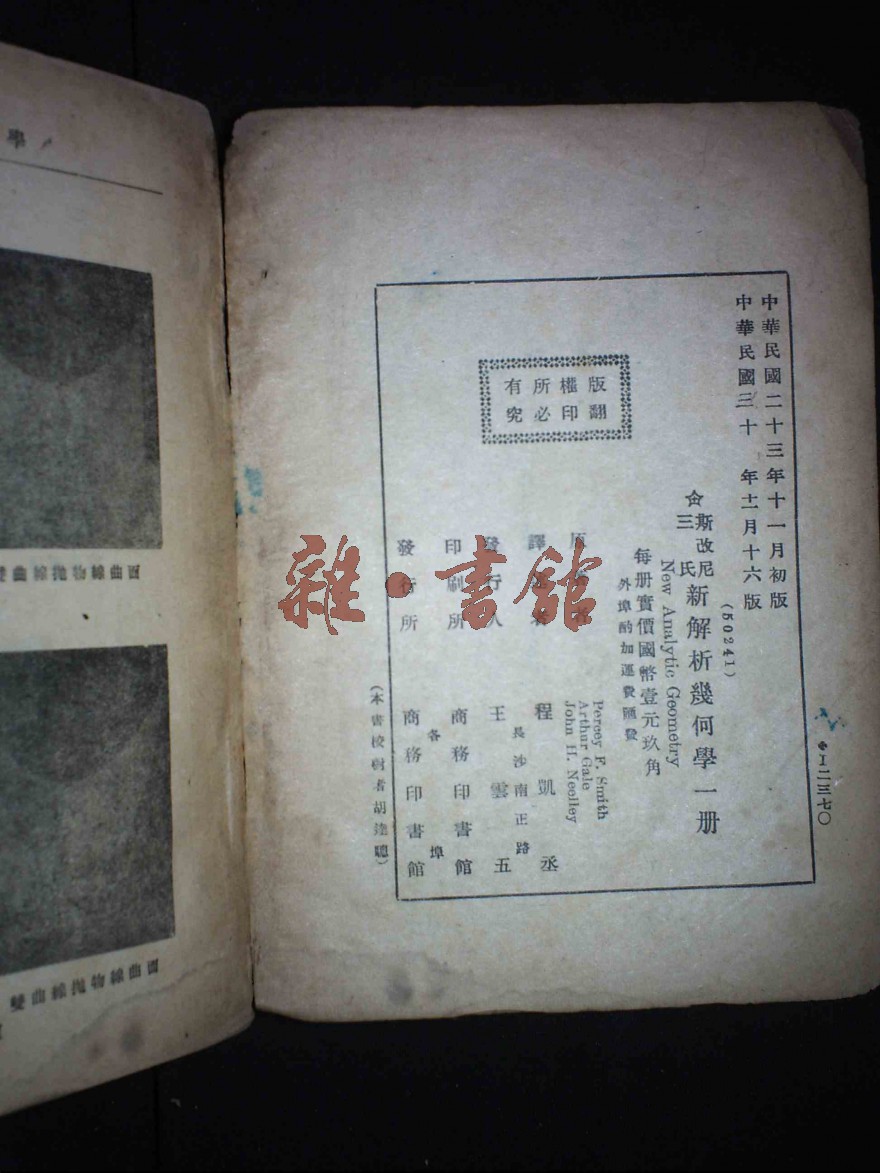 學
雙曲線拋物線曲面
雙曲線拋物線曲面
I二三七〇
中華民國二十三年十一月初版
中華民國三十年十一月十六版
(50241)
斯改尼三氏新解析幾何學一册
New Analytic Geometry
每册實價國幣壹元玖角
外埠酌加運費匯費
版權所有
翻印必究
原著者
Percey F. Smith
Arthur Gale
John H. Neelley
譯述者 程凱丞
發行人 王雲五
長沙南正路
印刷所 商務印書館
發行所 商務印書館
各埠
(本書校對者胡達聰)
雜·書館